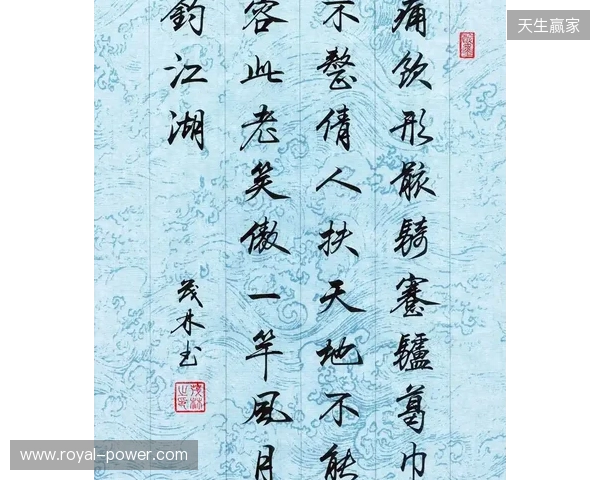 痛饮形骸騎蹇驢葛巾
不整倩人扶天地不能
容此老笑傲一竿風月
釣江湖
茂林书
天生赢家
www.royal-power.com